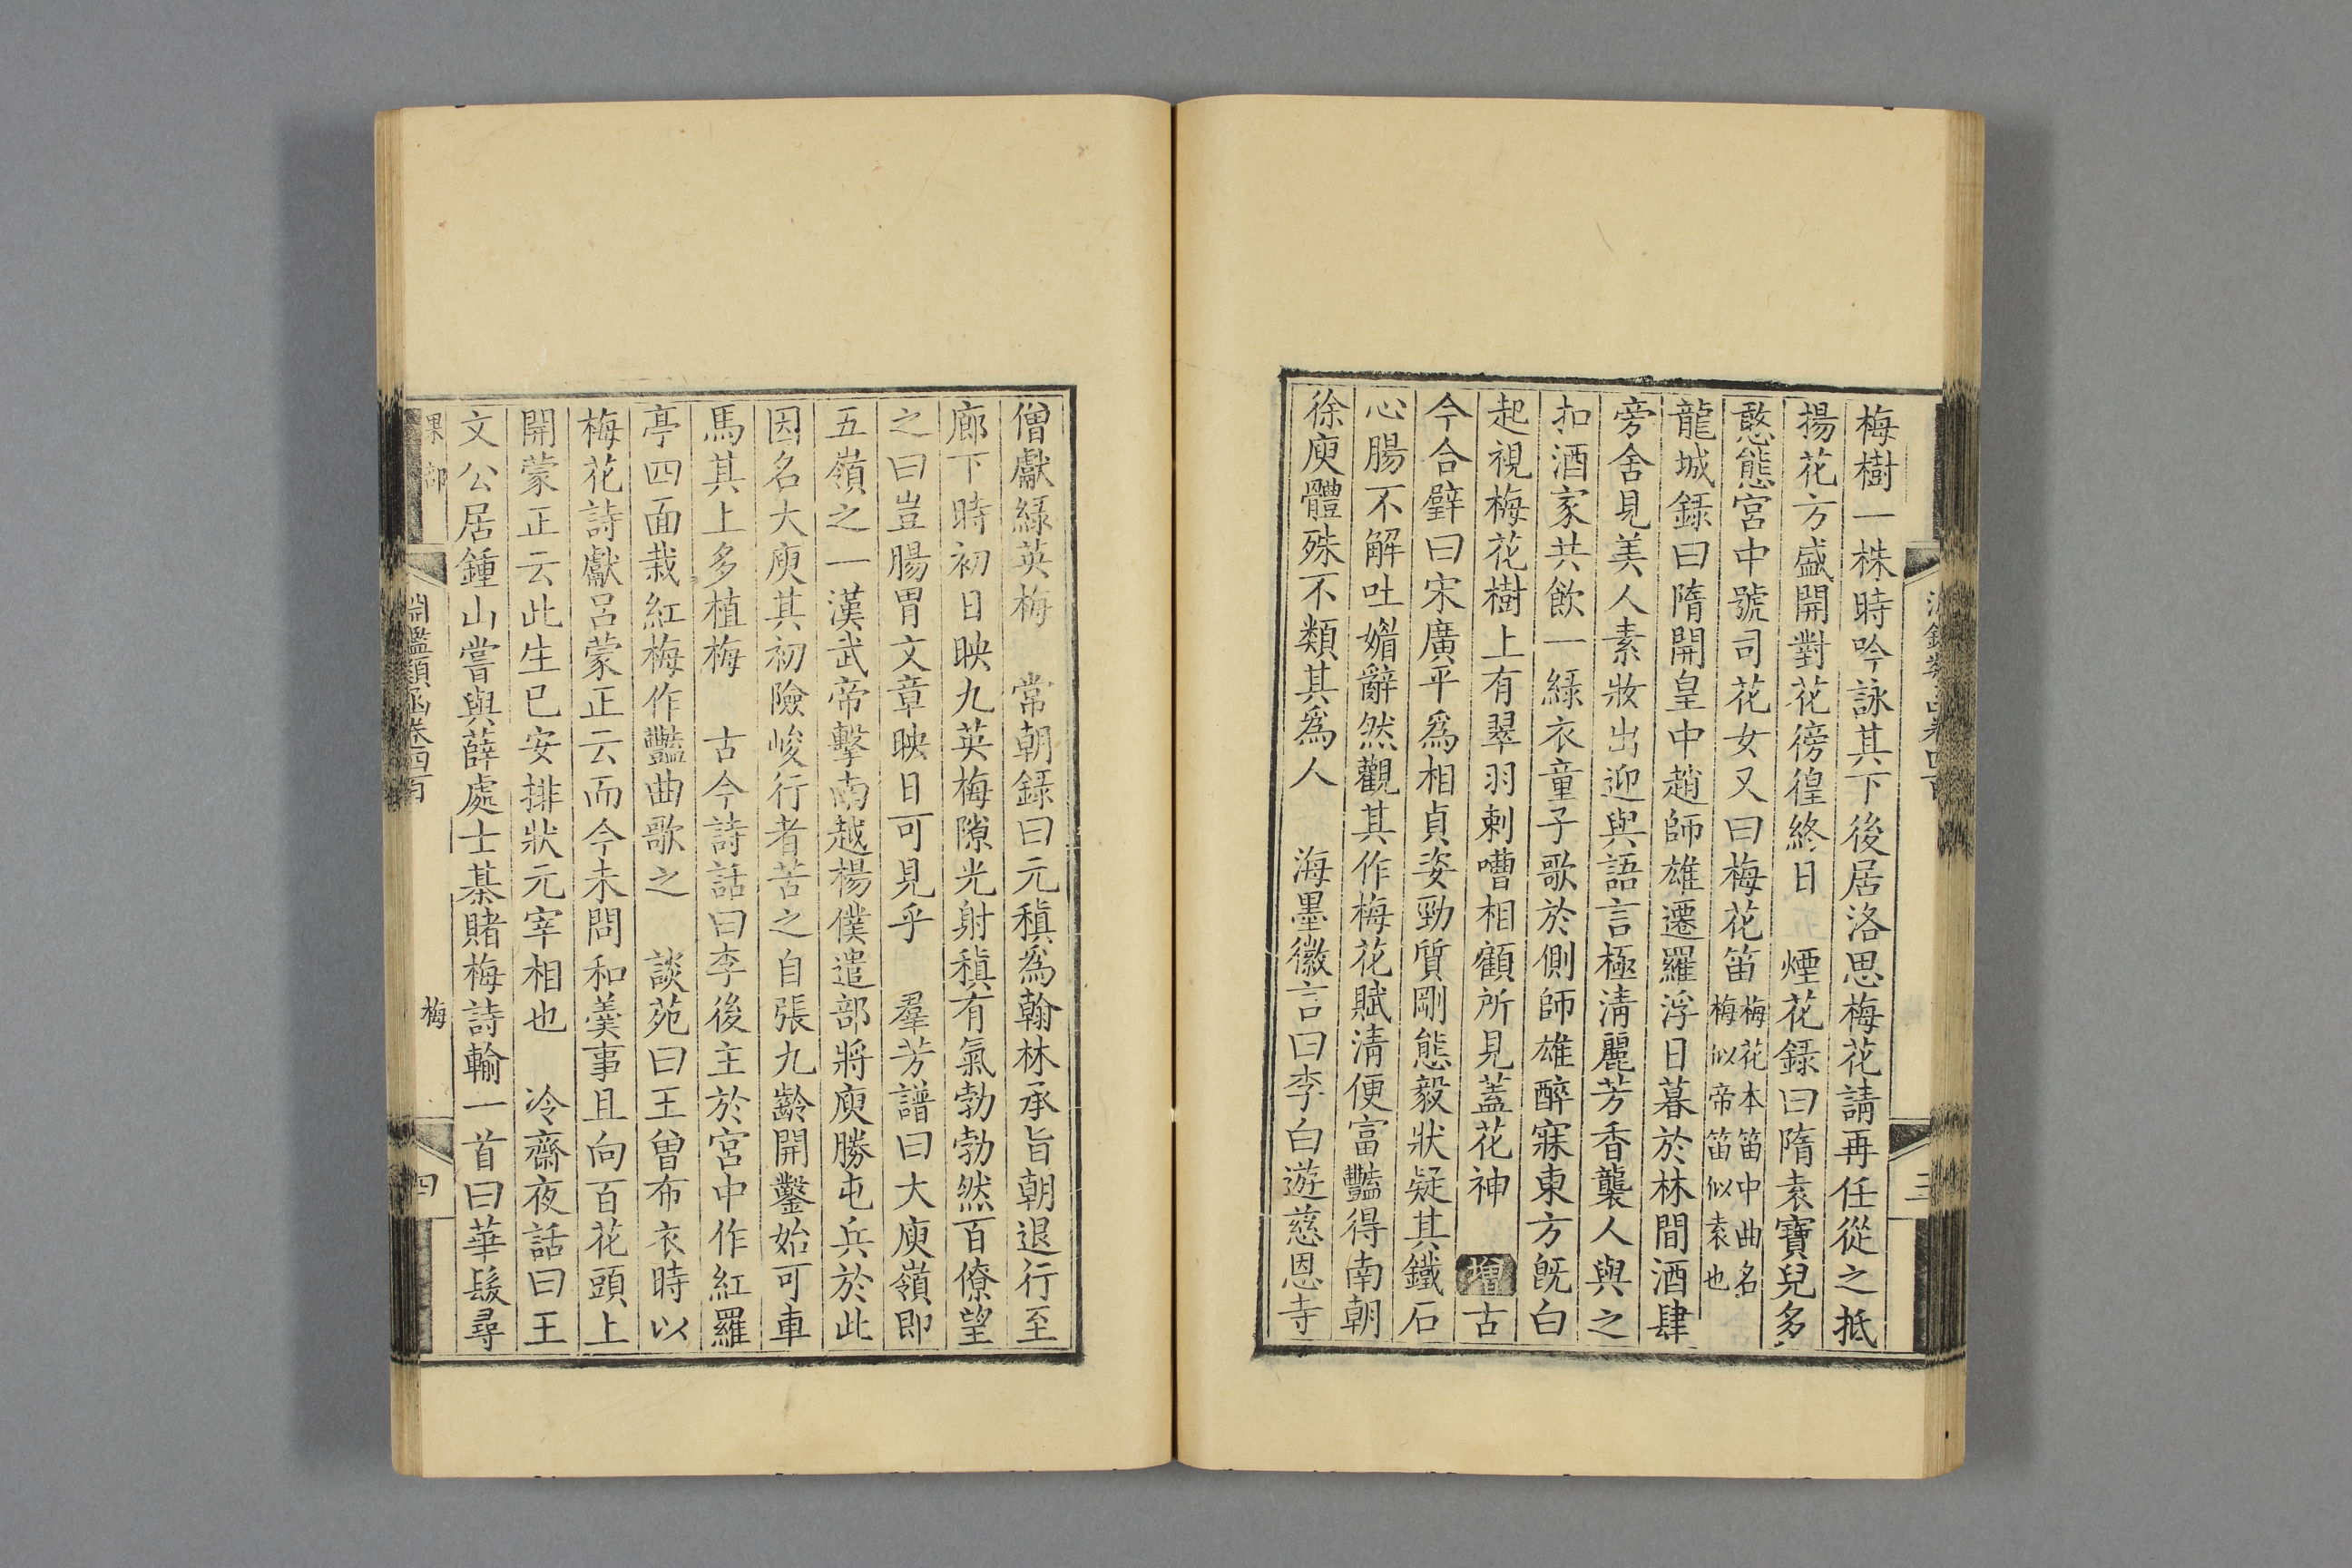 梅樹一株時吟詠其下後居洛思梅花請再任從之抵
揚花方盛開對花徬徨終日　煙花錄曰隋袁寶兒多
憨態宮中號司花女又曰梅花笛梅花本笛中曲名梅似帝笛似袁也
龍城錄曰隋開皇中趙師雄遷羅浮日暮於林間酒肆
旁舍見美人素妝出迎與語言極淸麗芳香襲人與之
扣酒家共飲一綠衣童子歌於側師雄醉寐東方既白
起視梅花樹上有翠羽剌嘈相顧所見蓋花神　增古
今合璧曰宋廣平爲相貞姿勁質剛態毅狀疑其鐵石
心腸不解吐媚辭然觀其作梅花賦淸便富豔得南朝
徐庾體殊不類其爲人　海墨徽言曰李白遊慈恩寺
三
僧獻綠英梅　常朝錄曰元稹爲翰林承旨朝退行至
廊下時初日映九英梅隙光射稹有氣勃勃然百僚望
之曰豈腸胃文章映日可見乎　羣芳譜曰大庾嶺即
五嶺之一漢武帝擊南越楊僕遣部將庾勝屯兵於此
因名大庾其初險峻行者苦之自張九齡開鑿始可車
馬其上多植梅　古今詩話曰李後主於宮中作紅羅
亭四面栽紅梅作豔曲歌之　談苑曰王曾布衣時以
梅花詩獻呂蒙正云而今未問和羹事且向百花頭上
開蒙正云此生已安排狀元宰相也　冷齋夜話曰王
文公居鍾山嘗與薛處士棊賭梅詩輸一首曰華髮尋
果部
淵鑑類函卷四百
梅
四